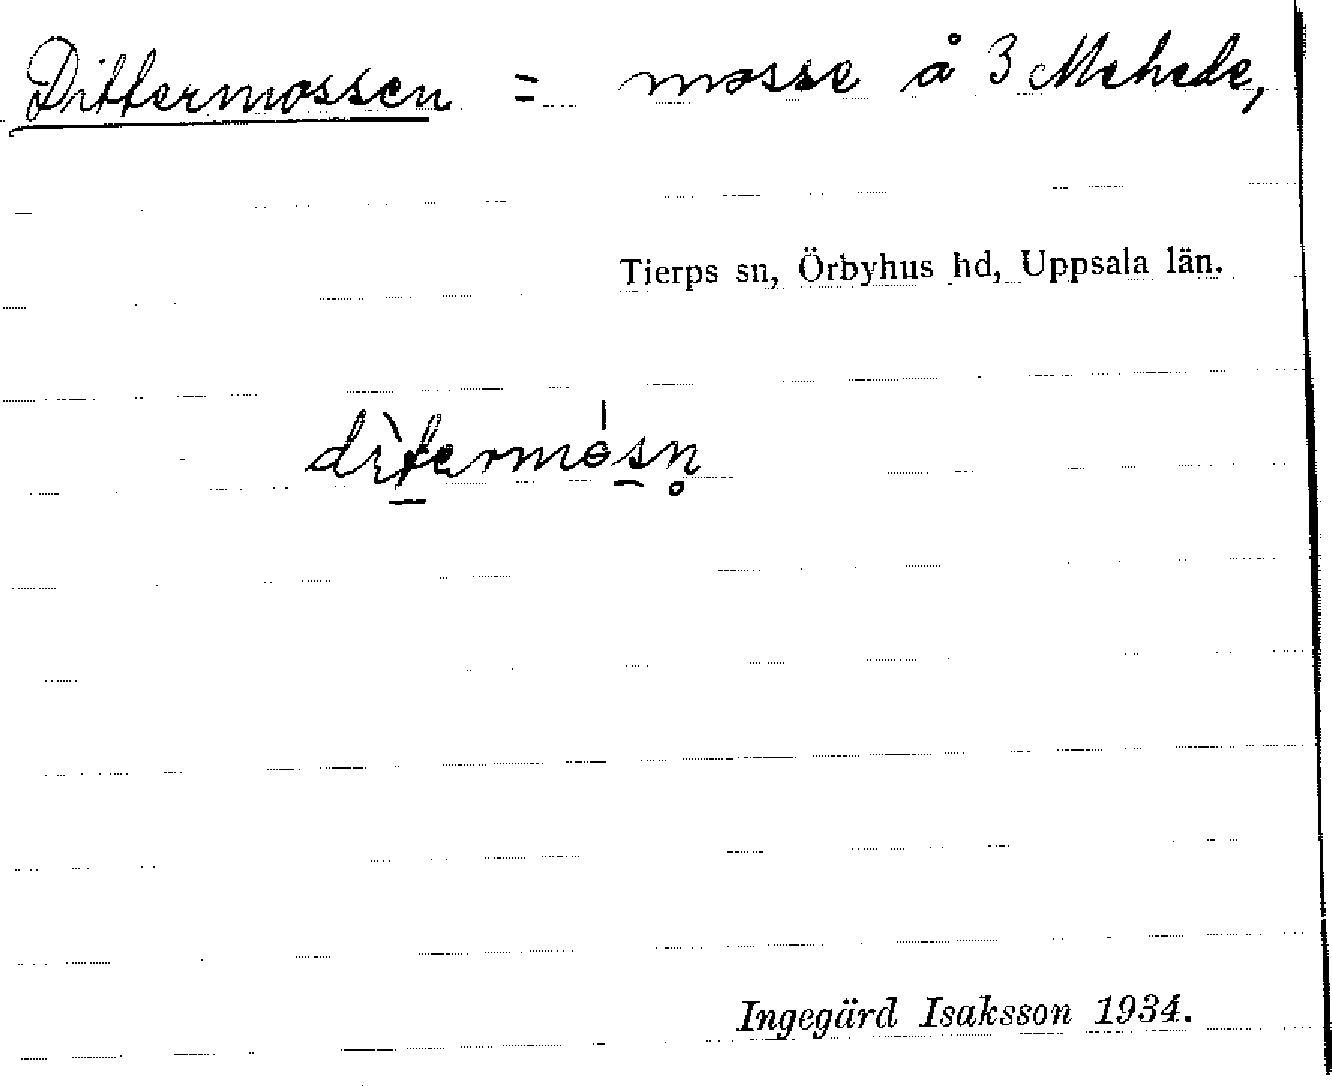 Dittermossen = mosse å 3 Mehede,
Tierps sn, Örbyhus hd, Uppsala län.
dìtermósn̥
Ingegärd Isaksson 1934.